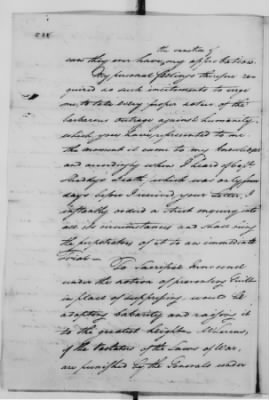 the sanction of
can they ever have, my approbation.
My personal feelings therefore re-
quired no such incitements to urge
me to take every proper notice of the
barbarous outrage against humanity,
which you have represented to me
the moment it came to my knowledge
and accordingly when I heard of Capt.
Huddy's Death, which was only four
days before I received your Letter, I
instantly ordered a strict enquiry into
all its circumstances and shall bring
the perpetrators of it to an immediate
Trial—
To Sacrifice Innocence
under the notion of preventing Guilt
in place of suppressing would be
adopting barbarity and raising it
to the greatest height. Whereas,
if the Violators of the Laws of War,
are punished by the Generals under